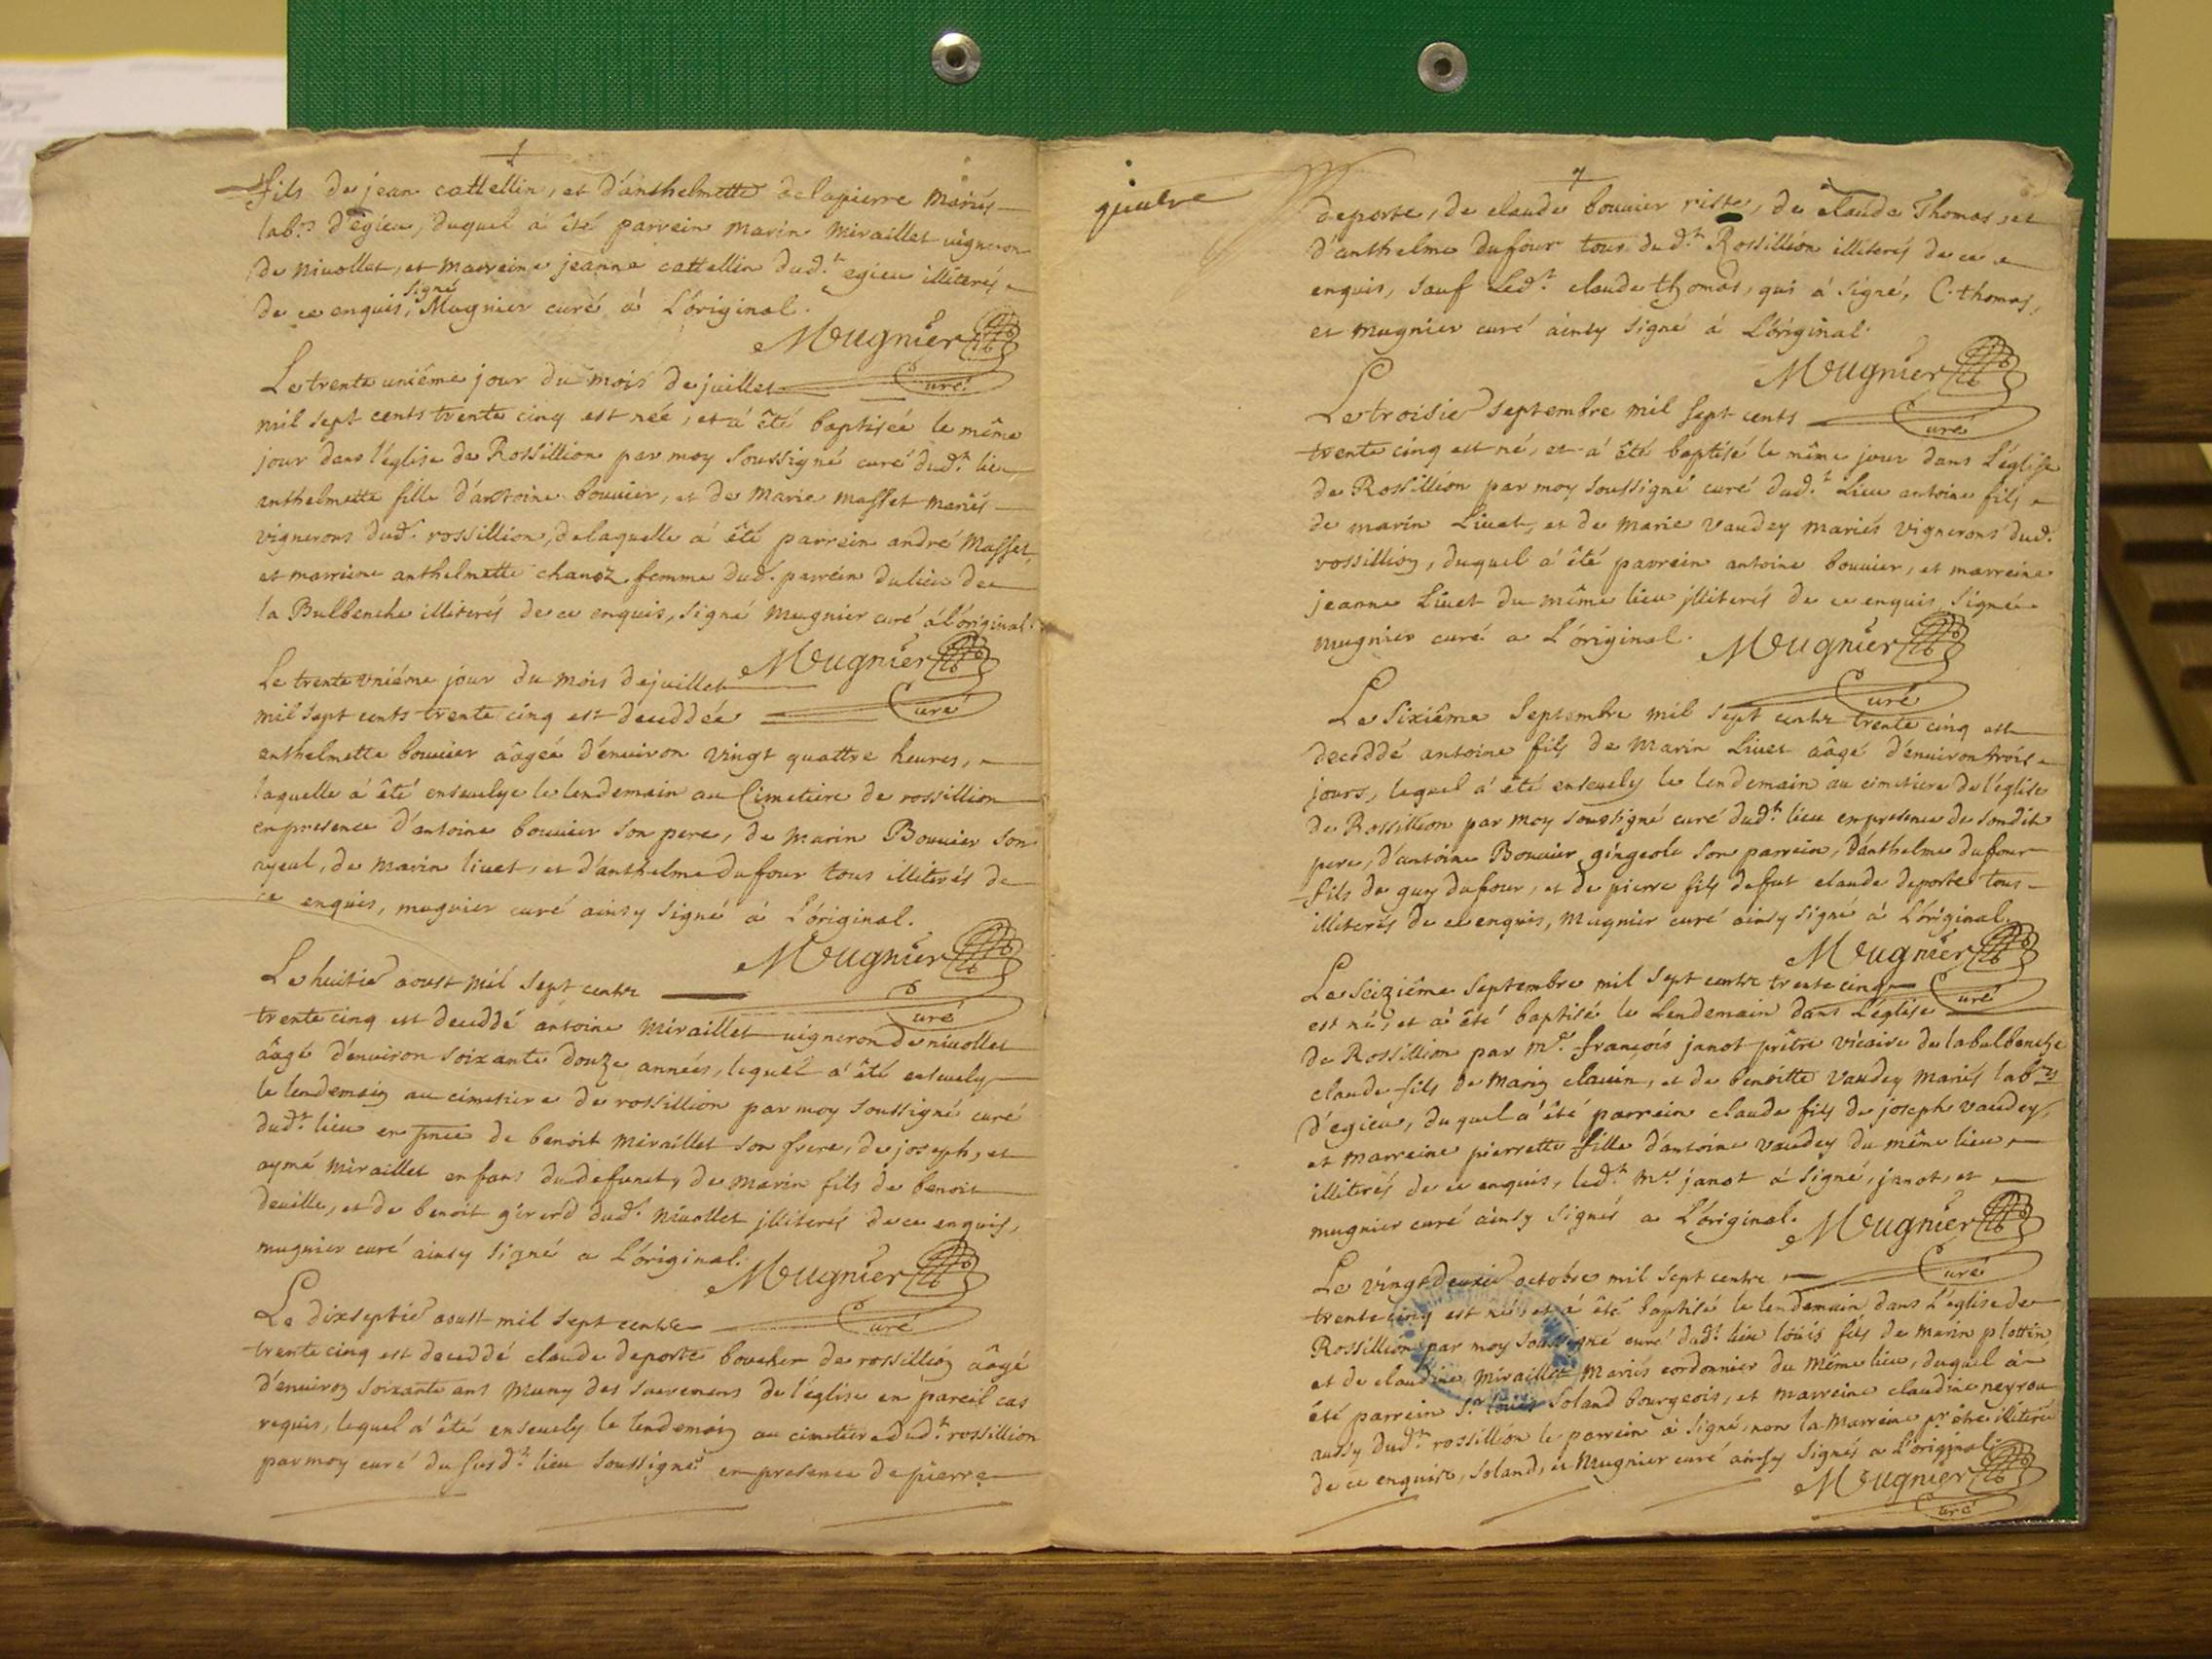 fils de jean cattellin, et d'anthelmette delapierre mariés
lab.rs d'egieu, duquel à été parrein marin miraillet vigneron
de nivollet, et marreine jeanne cattellin dud.t egieu illiterés
de ce enquis, signé Mugnier curé à L'original.
Mugnier
Curé
Le trente uniéme jour du mois de juillet
mil sept cents trente cinq est née, et à été baptisée le même
jour dans l'église de Rossillion par moy soussigné curé dud.t lieu
anthelmette fille d'antoine bouvier, et de marie masset mariés
vignerons dud.t rossillion, de laquelle à été parrein andré masset,
et marreine anthelmette chanoz femme dud.t parrein du lieu de
la Bulbenche illiterés de ce enquis, signé mugnier curé à l'original.
Mugnier
Curé
Le trente uniéme jour du mois de juillet
mil sept cents trente cinq est deceddée
anthelmette bouvier âagée d'environ vingt quattre heures,
laquelle à été ensevelye le lendemain au Cimetiere de rossillion
en presence d'antoine bouvier son pere, de marin Bouvier son
ayeul, de marin livet, et d'anthelme dufour tous illiterés de
ce enquis, mugnier curé ainsy signé à L'original.
Mugnier
Curé
Le huitie aoust mil sept cents
trente cinq est deceddé antoine miraillet vigneron de nivollet
âagé d'environ soixante douze années, lequel à été ensevely
le lendemain au cimetiere de rossillion par moy soussigné curé
dud.t lieu en pnce de benoit miraillet son frere, de joseph, et
aymé miraillet enfans du defunct, de marin fils de benoit
deville, et de benoit girerd dud.t nivollet illiterés de ce enquis,
mugnier curé ainsy signé a L'original.
Mugnier
Curé
Le dixseptie aoust mil sept cents
trente cinq est deceddé claude deporte boucher de rossillion âagé
d'environ soixante ans muny des sacremens de l'église en pareil cas
requis, lequel à été ensevely le lendemain au cimetiere dud.t rossillion
par moy curé du susd.t lieu soussigné en presence de pierre
7
deporte, de claude bouvier riste, de claude Thomas, et
d'anthelme dufour tous dud.t Rossillion illiterés de ce
enquis, sauf led.t claude thomas, qui à signé, C. thomas,
et mugnier curé ainsy signé à L'original.
Mugnier
Curé
Le troisie septembre mil sept cents
trente cinq est né, et à été baptisé le même jour dans L'église
de Rossillion par moy soussigné curé dud.t Lieu antoine fils
de marin Livet, et de marie vaudey mariés vignerons dud.
rossillion, duquel à été parrein antoine bouvier, et marreine
jeanne Livet du même lieu illiterés de ce enquis, signé
mugnier curé a L'original.
Mugnier
Curé
Le sixiéme septembre mil sept cents trente cinq est
deceddé antoine fils de marin Livet âagé d'environ trois
jours, lequel à été ensevely le lendemain au cimetiere de l'église
de Rossillion par moy soussigné curé dud.t lieu en presence de sondit
pere, d'antoine Bouvier gingeole son parrein, d'anthelme dufour
fils de guy dufour, et de pierre fils de fut claude deporte tous
illiterés de ce enquis, mugnier curé ainsy signé à L'original.
Mugnier
Curé
Le seiziéme septembre mil sept cents trente cinq
est né, et à été baptisé le Lendemain dans L'église
de Rossillion par m.re françois janot prêtre vicaire de labulbenche
claude fils de marin clavin, et de benoitte vaudey mariés lab.rs
d'egieu, duquel à été parrein claude fils de joseph vaudey,
et marreine pierrette fille d'antoine vaudey du même lieu
illiterés de ce enquis, led.t m.re janot à signé, janot, et
mugnier curé ainsy signés a L'original.
Mugnier
Curé
Le vingt deuxie octobre mil sept cents
trente cinq est né, et à été baptisé le lendemain dans L'église de
Rossillion par moy soussigné curé dud.t lieu loüis fils de marin plottin
et de claudine miraillet mariés cordonnier du même lieu, duquel à
été parrein S.r loüis Soland bourgeois, et marreine claudine neyrou
aussy dud.t rossillion le parrein à signé, non la marreine p.r être illiterée
de ce enquise, Soland, et Mugnier curé ainsy signés a L'original.
Mugnier
Curé